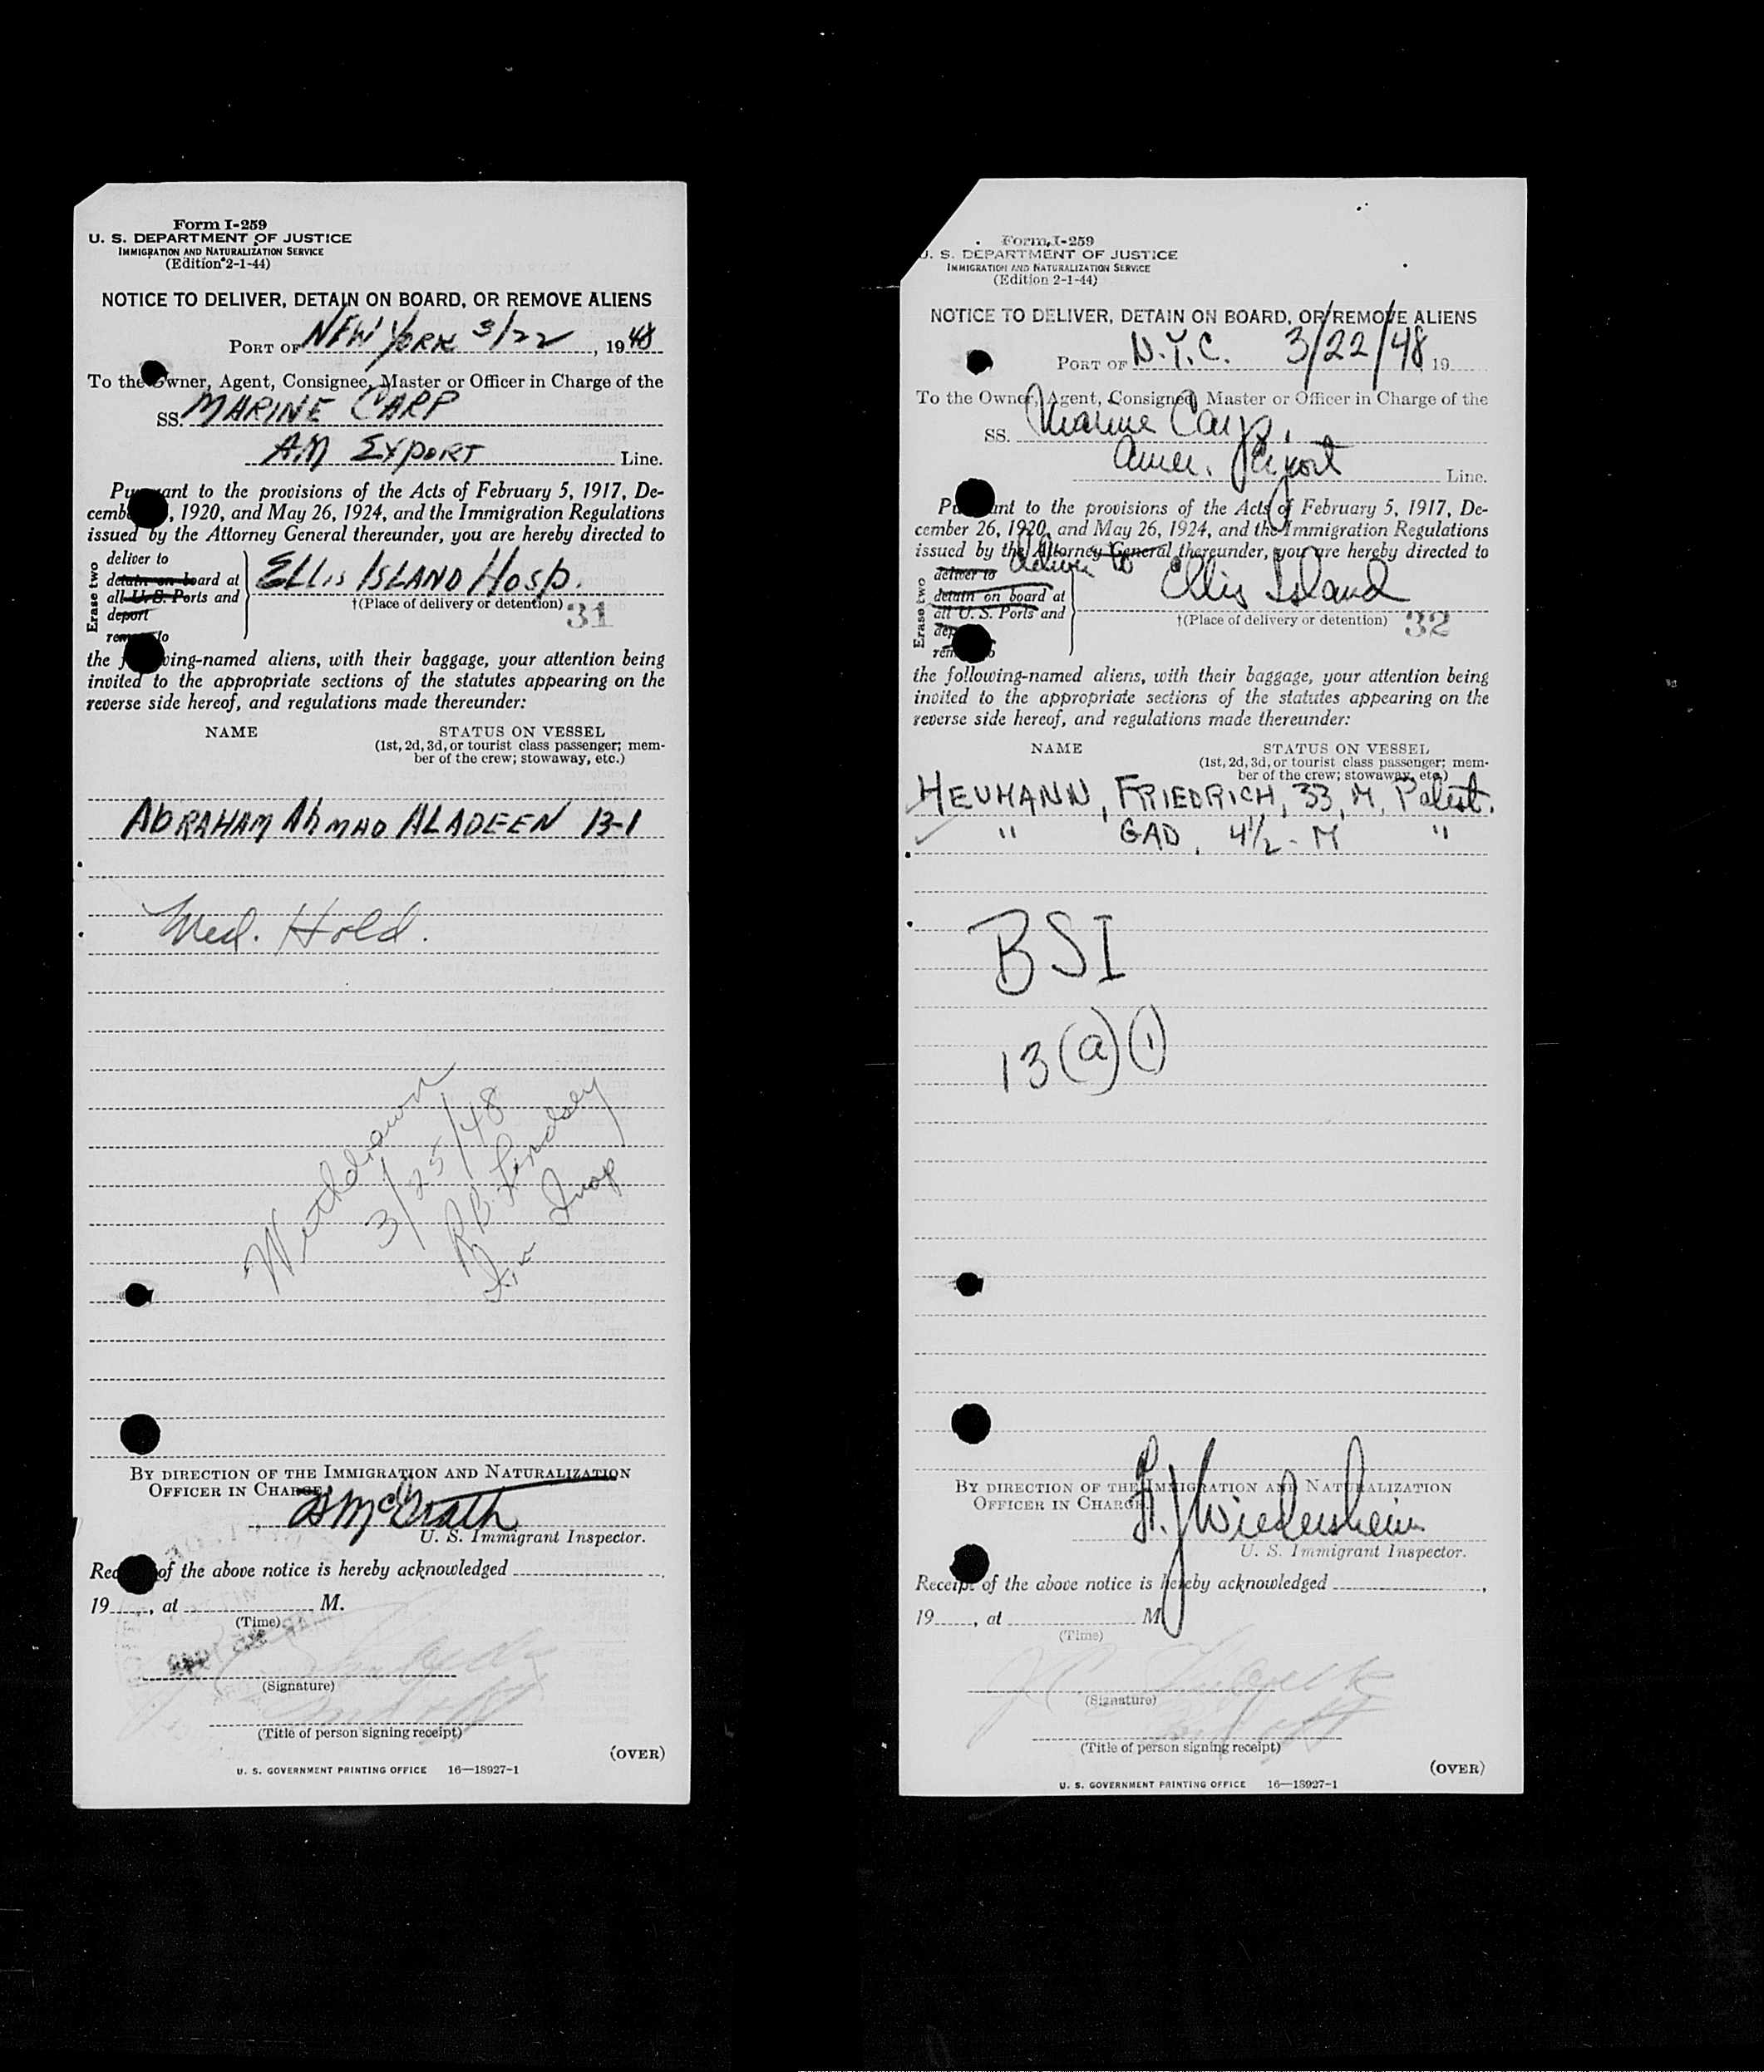 Form I-259
U. S. DEPARTMENT OF JUSTICE
IMMIGRATION AND NATURALIZATION SERVICE
(Edition 2-1-44)
NOTICE TO DELIVER, DETAIN ON BOARD, OR REMOVE ALIENS
PORT OF NEW YORK 3/22, 1948
To the Owner, Agent, Consignee, Master or Officer in Charge of the
SS. MARINE CARP
AM EXPORT Line.
Pursuant to the provisions of the Acts of February 5, 1917, De-
cemb , 1920, and May 26, 1924, and the Immigration Regulations
issued by the Attorney General thereunder, you are hereby directed to
Erase two
deliver to
detain on board at
all U. S. Ports and
deport
remove to
ELLIS ISLAND HOSP.
†(Place of delivery or detention) 31
the following-named aliens, with their baggage, your attention being
invited to the appropriate sections of the statutes appearing on the
reverse side hereof, and regulations made thereunder:
NAME STATUS ON VESSEL
(1st, 2d, 3d, or tourist class passenger; mem-
ber of the crew; stowaway, etc.)
ABRAHAM AHMAD ALADEEN 13-1
Med. Hold.
Withdrawn
3/25/48
R.B. Lindsey
Insp
BY DIRECTION OF THE IMMIGRATION AND NATURALIZATION
OFFICER IN CHARGE.
McGrath
U. S. Immigrant Inspector.
Receipt of the above notice is hereby acknowledged
19 , at M.
(Time)
(Signature)
(Title of person signing receipt)
(OVER)
U. S. GOVERNMENT PRINTING OFFICE 16—18927-1
Form I-259
U. S. DEPARTMENT OF JUSTICE
IMMIGRATION AND NATURALIZATION SERVICE
(Edition 2-1-44)
NOTICE TO DELIVER, DETAIN ON BOARD, OR REMOVE ALIENS
PORT OF N.Y.C. 3/22/48 19
To the Owner, Agent, Consignee, Master or Officer in Charge of the
SS. Marine Carp,
Amer. Export Line.
Pursuant to the provisions of the Acts of February 5, 1917, De-
cember 26, 1920, and May 26, 1924, and the Immigration Regulations
issued by the Attorney General thereunder, you are hereby directed to
Erase two
deliver to deliver to
detain on board at
all U. S. Ports and
deport
remove to
Ellis Island
†(Place of delivery or detention) 32
the following-named aliens, with their baggage, your attention being
invited to the appropriate sections of the statutes appearing on the
reverse side hereof, and regulations made thereunder:
NAME STATUS ON VESSEL
(1st, 2d, 3d, or tourist class passenger; mem-
ber of the crew; stowaway, etc.)
HEUMANN, FRIEDRICH, 33, M, Palest.
" GAD, 4 1/2 - M "
BSI
13(a)(1)
BY DIRECTION OF THE IMMIGRATION AND NATURALIZATION
OFFICER IN CHARGE.
Wiedersheim
U. S. Immigrant Inspector.
Receipt of the above notice is hereby acknowledged ,
19 , at M
(Time)
(Signature)
(Title of person signing receipt)
(OVER)
U. S. GOVERNMENT PRINTING OFFICE 16—18927-1